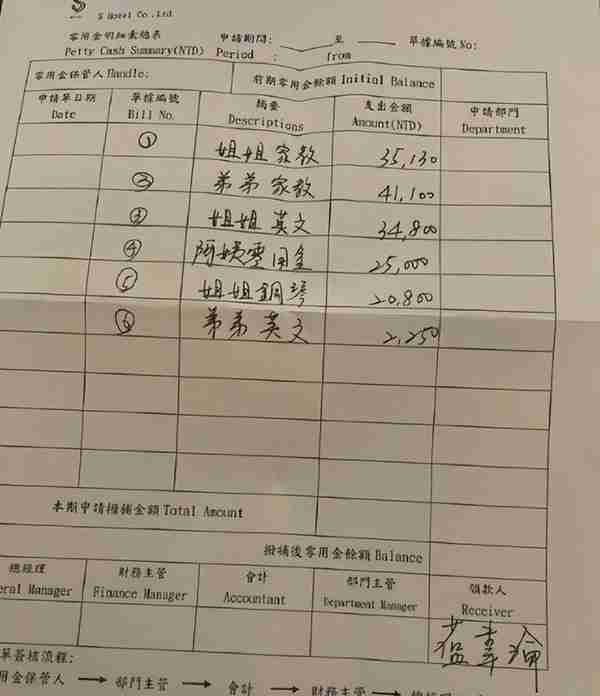 S Hotel Co.,Ltd
零用金明細彙總表 申請期間: 至 單據編號No:
Petty Cash Summary(NTD) Period : from
零用金保管人Handle: 前期零用金餘額Initial Balance
申請單日期 單據編號 摘要 支出金額 申請部門
Date Bill No. Descriptions Amount(NTD) Department
① 姐姐家教 35,130
② 弟弟家教 41,100
③ 姐姐英文 34,800
④ 阿姨零用金 25,000
⑤ 姐姐鋼琴 20,800
⑥ 弟弟英文 2,250
本期申請撥補金額Total Amount
撥補後零用金餘額Balance
總經理 財務主管 會計 部門主管 領款人
eral Manager Finance Manager Accountant Department Manager Receiver
單簽核流程:
用金保管人 → 部門主管 → 會計 → 財務主管 →